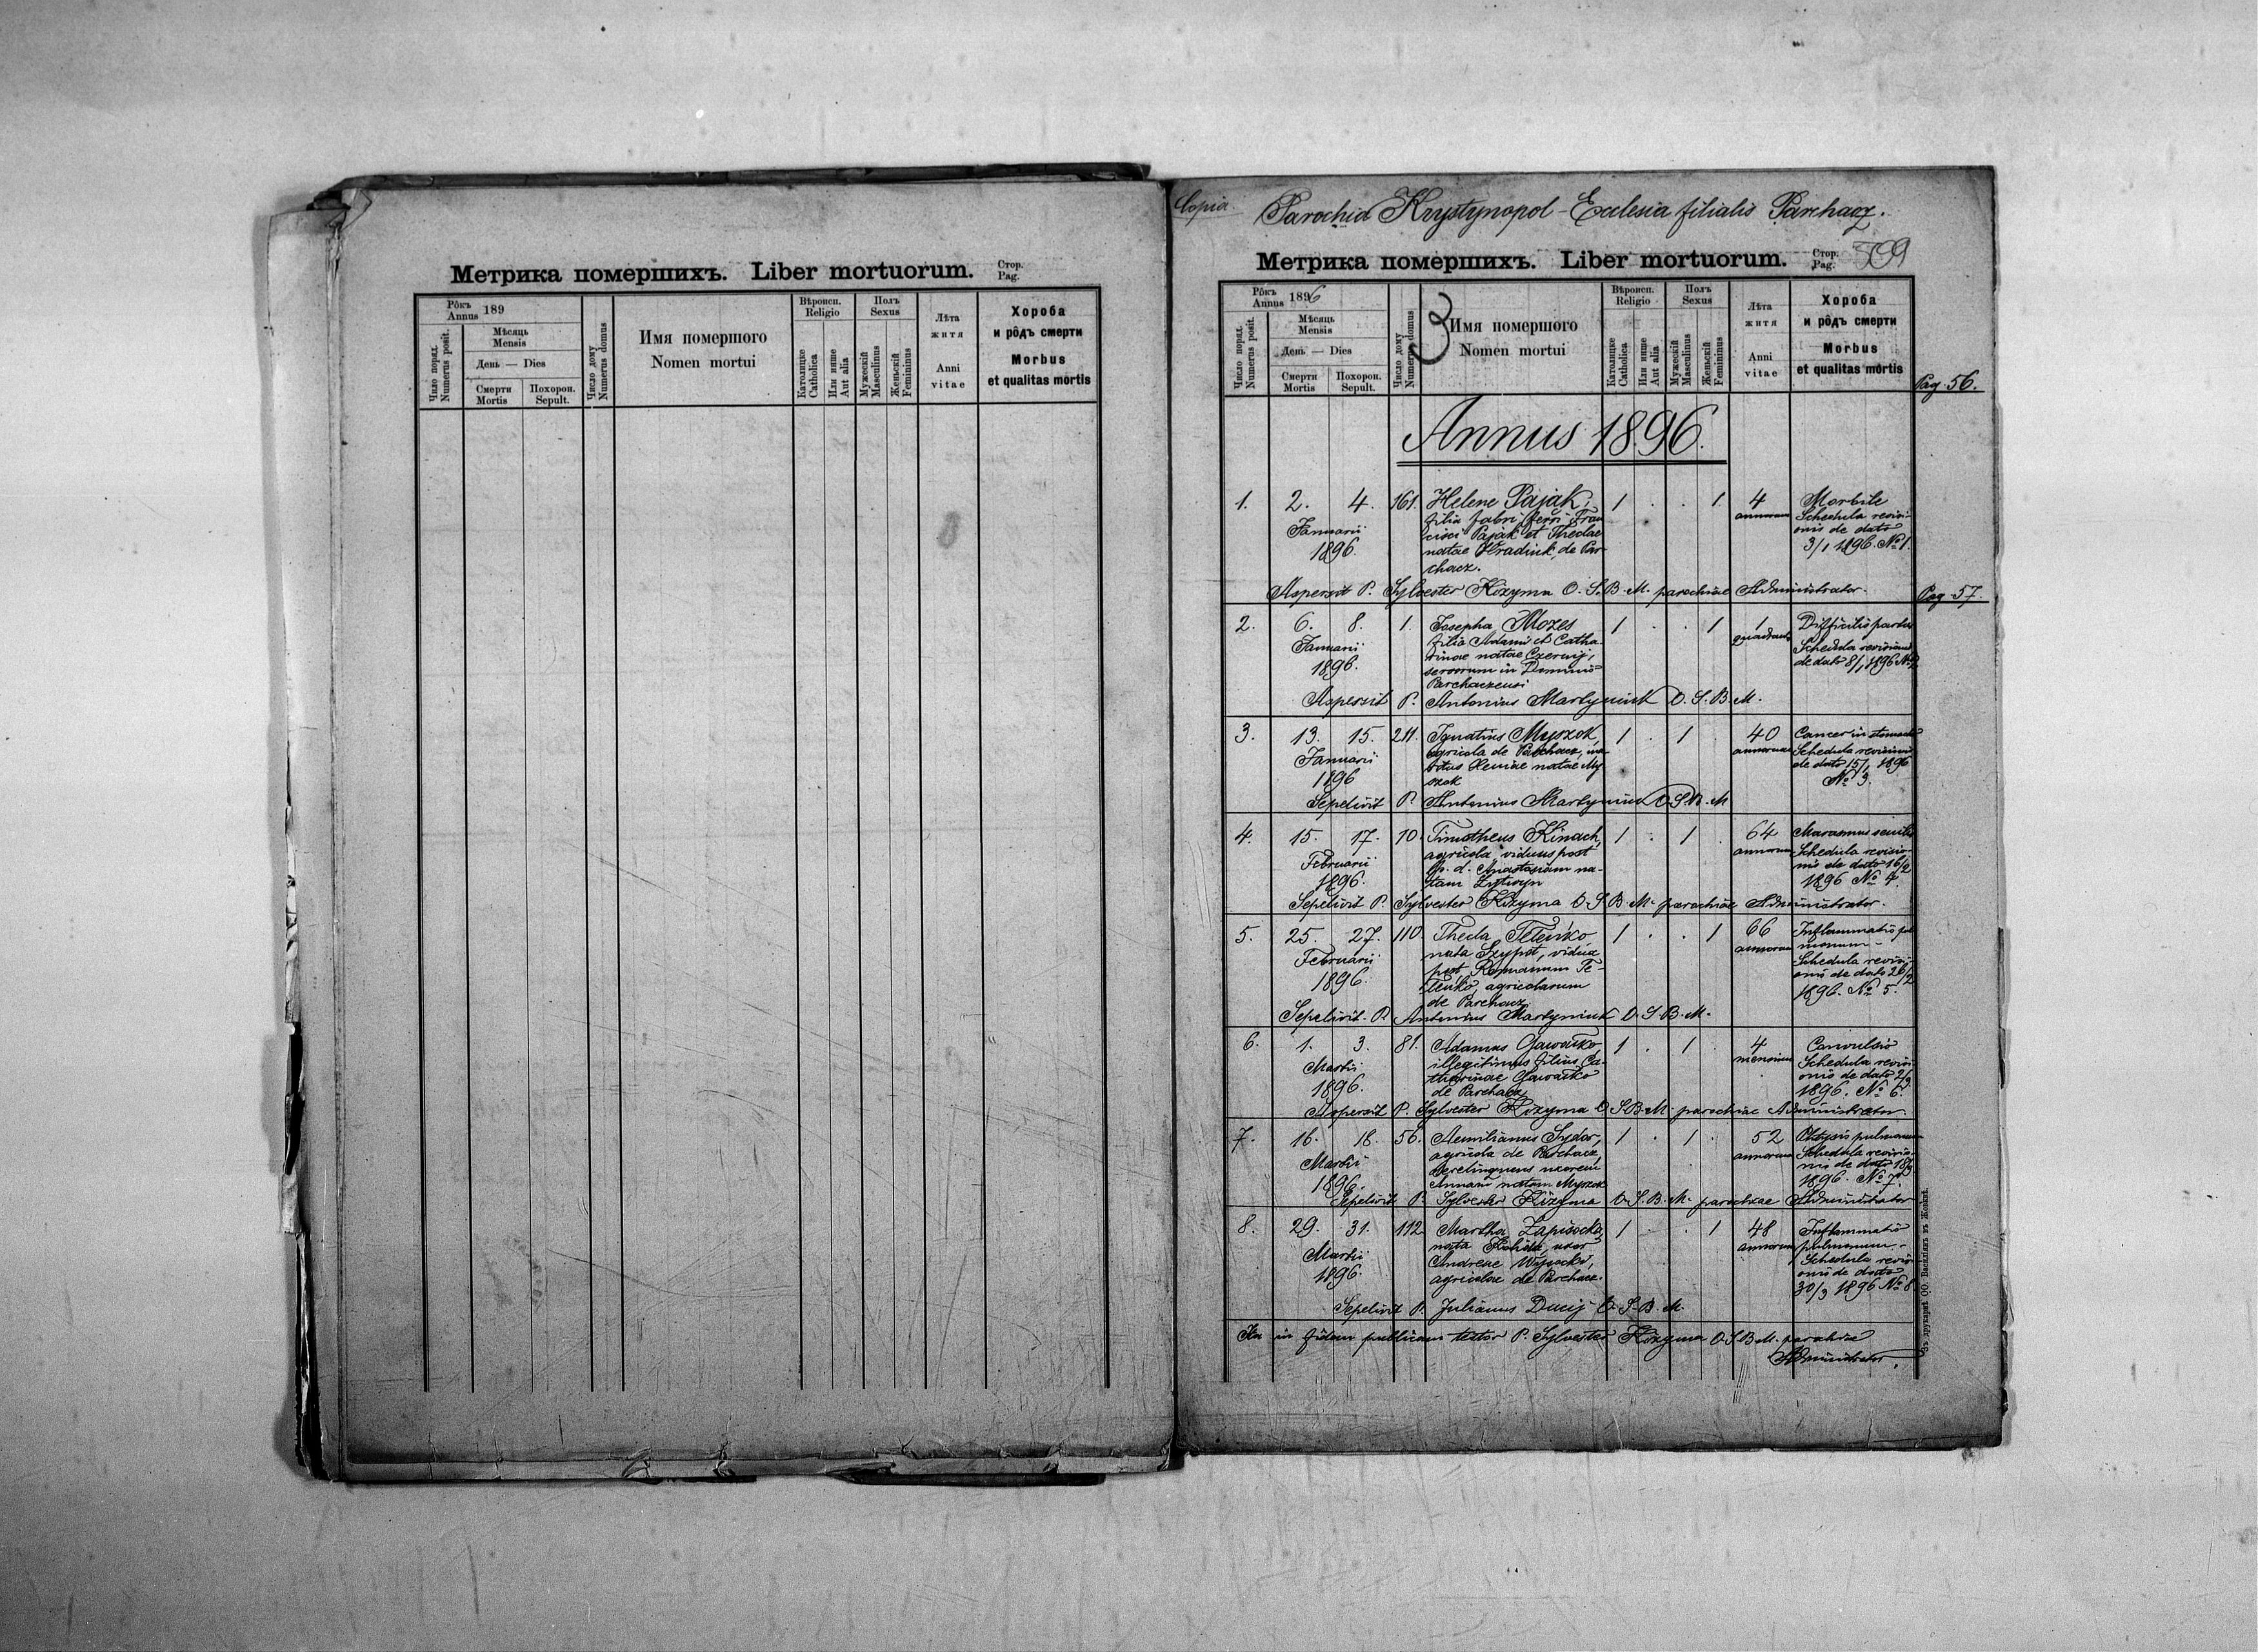 Метрика помершихъ. Liber mortuorum.
Стор.
Pag.
Рôкъ
Annus 189
Число поряд.
Numerus posit.
Мѣсяць
Mensis
День — Dies
Смерти
Mortis
Похорон.
Sepult.
Число дому
Numerus domus
Имя помершого
Nomen mortui
Вѣроисп.
Religio
Католицке
Catholica
Или инше
Aut alia
Полъ
Sexus
Мужескій
Masculinus
Женьскій
Femininus
Лѣта
житя
Anni
vitae
Хороба
и рôдъ смерти
Morbus
et qualitas mortis
Copia.
Parochia Krystynopol - Ecclesia filialis Parchacz.
Метрика помершихъ. Liber mortuorum.
Стор.
Pag. 509
Рôкъ
Annus 1896
Число поряд.
Numerus posit.
Мѣсяць
Mensis
День — Dies
Смерти
Mortis
Похорон.
Sepult.
Число дому
Numerus domus
3
Имя помершого
Nomen mortui
Вѣроисп.
Religio
Католицке
Catholica
Или инше
Aut alia
Полъ
Sexus
Мужескій
Masculinus
Женьскій
Femininus
Лѣта
житя
Anni
vitae
Хороба
и рôдъ смерти
Morbus
et qualitas mortis
Pag. 56.
Annus 1896.
1. 2. 4. 161. Helene Pająk, 1 . . 1 4 Morbile
Januarii filia fabri ferri Fran annorum Schedula revisi-
1896. cisci Pająk et Theclae onis de dato
natae Hradiuk, de Par 3/1 1896. № 1.
chacz.
Aspersit P. Sylvester Kozyma O. S. B. M. parochiae Administrator.
Pag. 57.
2. 6. 8. 1. Josepha Mozes 1 . . 1 1 Difficilis partus
Januarii filia Adami et Catha- Schedula revisionis
1896. rinae natae Czerwij, de dato 8/1 1896 № 2
servorum in Dominio
Parchaczensi
Aspersit P. Antonius Martyniuk O. S. B. M.
3. 13. 15. 211. Ignatius Myszok, 1 . 1 . 40 Cancer in stomacho
Januarii agricola de Parchacz, ma annorum Schedula revisionis
1896 ritus natae My de dato 15/1 1896
szok № 3.
Sepelivit P. Antonius Martyniuk O. S. B. M
4. 15. 17. 10. Timotheus Kinach, 1 . 1 . 64 Marasmus senilis
Februarii agricola, viduus post annorum Schedula revisio-
1896. p. d. Anastasiam na- nis de dato 16/2
tam Lytwyn 1896 № 4.
Sepelivit P. Sylvester Kozyma O. S. B. M. parochiae Administrator.
5. 25. 27. 110 Thecla Teleńko 1 . . 1 66 Inflammatio pul
Februarii nata Szypot, vidua annorum monum -
1896. post Romanum Te- Schedula revisi-
leńko, agricolarum onis de dato 26/2
de Parchacz. 1896. № 5.
Sepelivit P. Antonius Martyniuk O. S. B. M.
6. 1. 3. 81. Adamus Gawońko 1 . 1 . 4 Convulsio
Martii illegitimus filius Ca- mensium Schedula revisi-
1896. tharinae Gawońko onis de dato 2/3
de Parchacz 1896. № 6.
Aspersit P. Sylvester Kozyma O S. B. M. parochiae Administrator.
7. 16. 18. 56. Aemilianus Sydor, 1 . 1 . 52 pulmonum
Martii agricola de Parchacz, annorum Schedula revisio-
1896. derelinquens uxorem nis de dato 18/3
Annam natam Myszok 1896. № 7.
Sepelivit P. Sylvester Kozyma O. S. B. M. parochiae Administrator
8. 29. 31. 112 Martha Zapisocka, 1 . . 1 48 Inflammatio
Martii nata uxor annorum pulmonum -
1896. Andreae Schedula revisi-
agricolae de Parchacz. onis de dato
30/3 1896 № 8
Sepelivit P. Julianus Ducij O. S. B. M.
Ita in fidem publicam testor P. Sylvester Kozyma O. S. B. M. parochiae
Administrator.
Зъ друкарнѣ ОО. Василіянъ въ Жовкві.